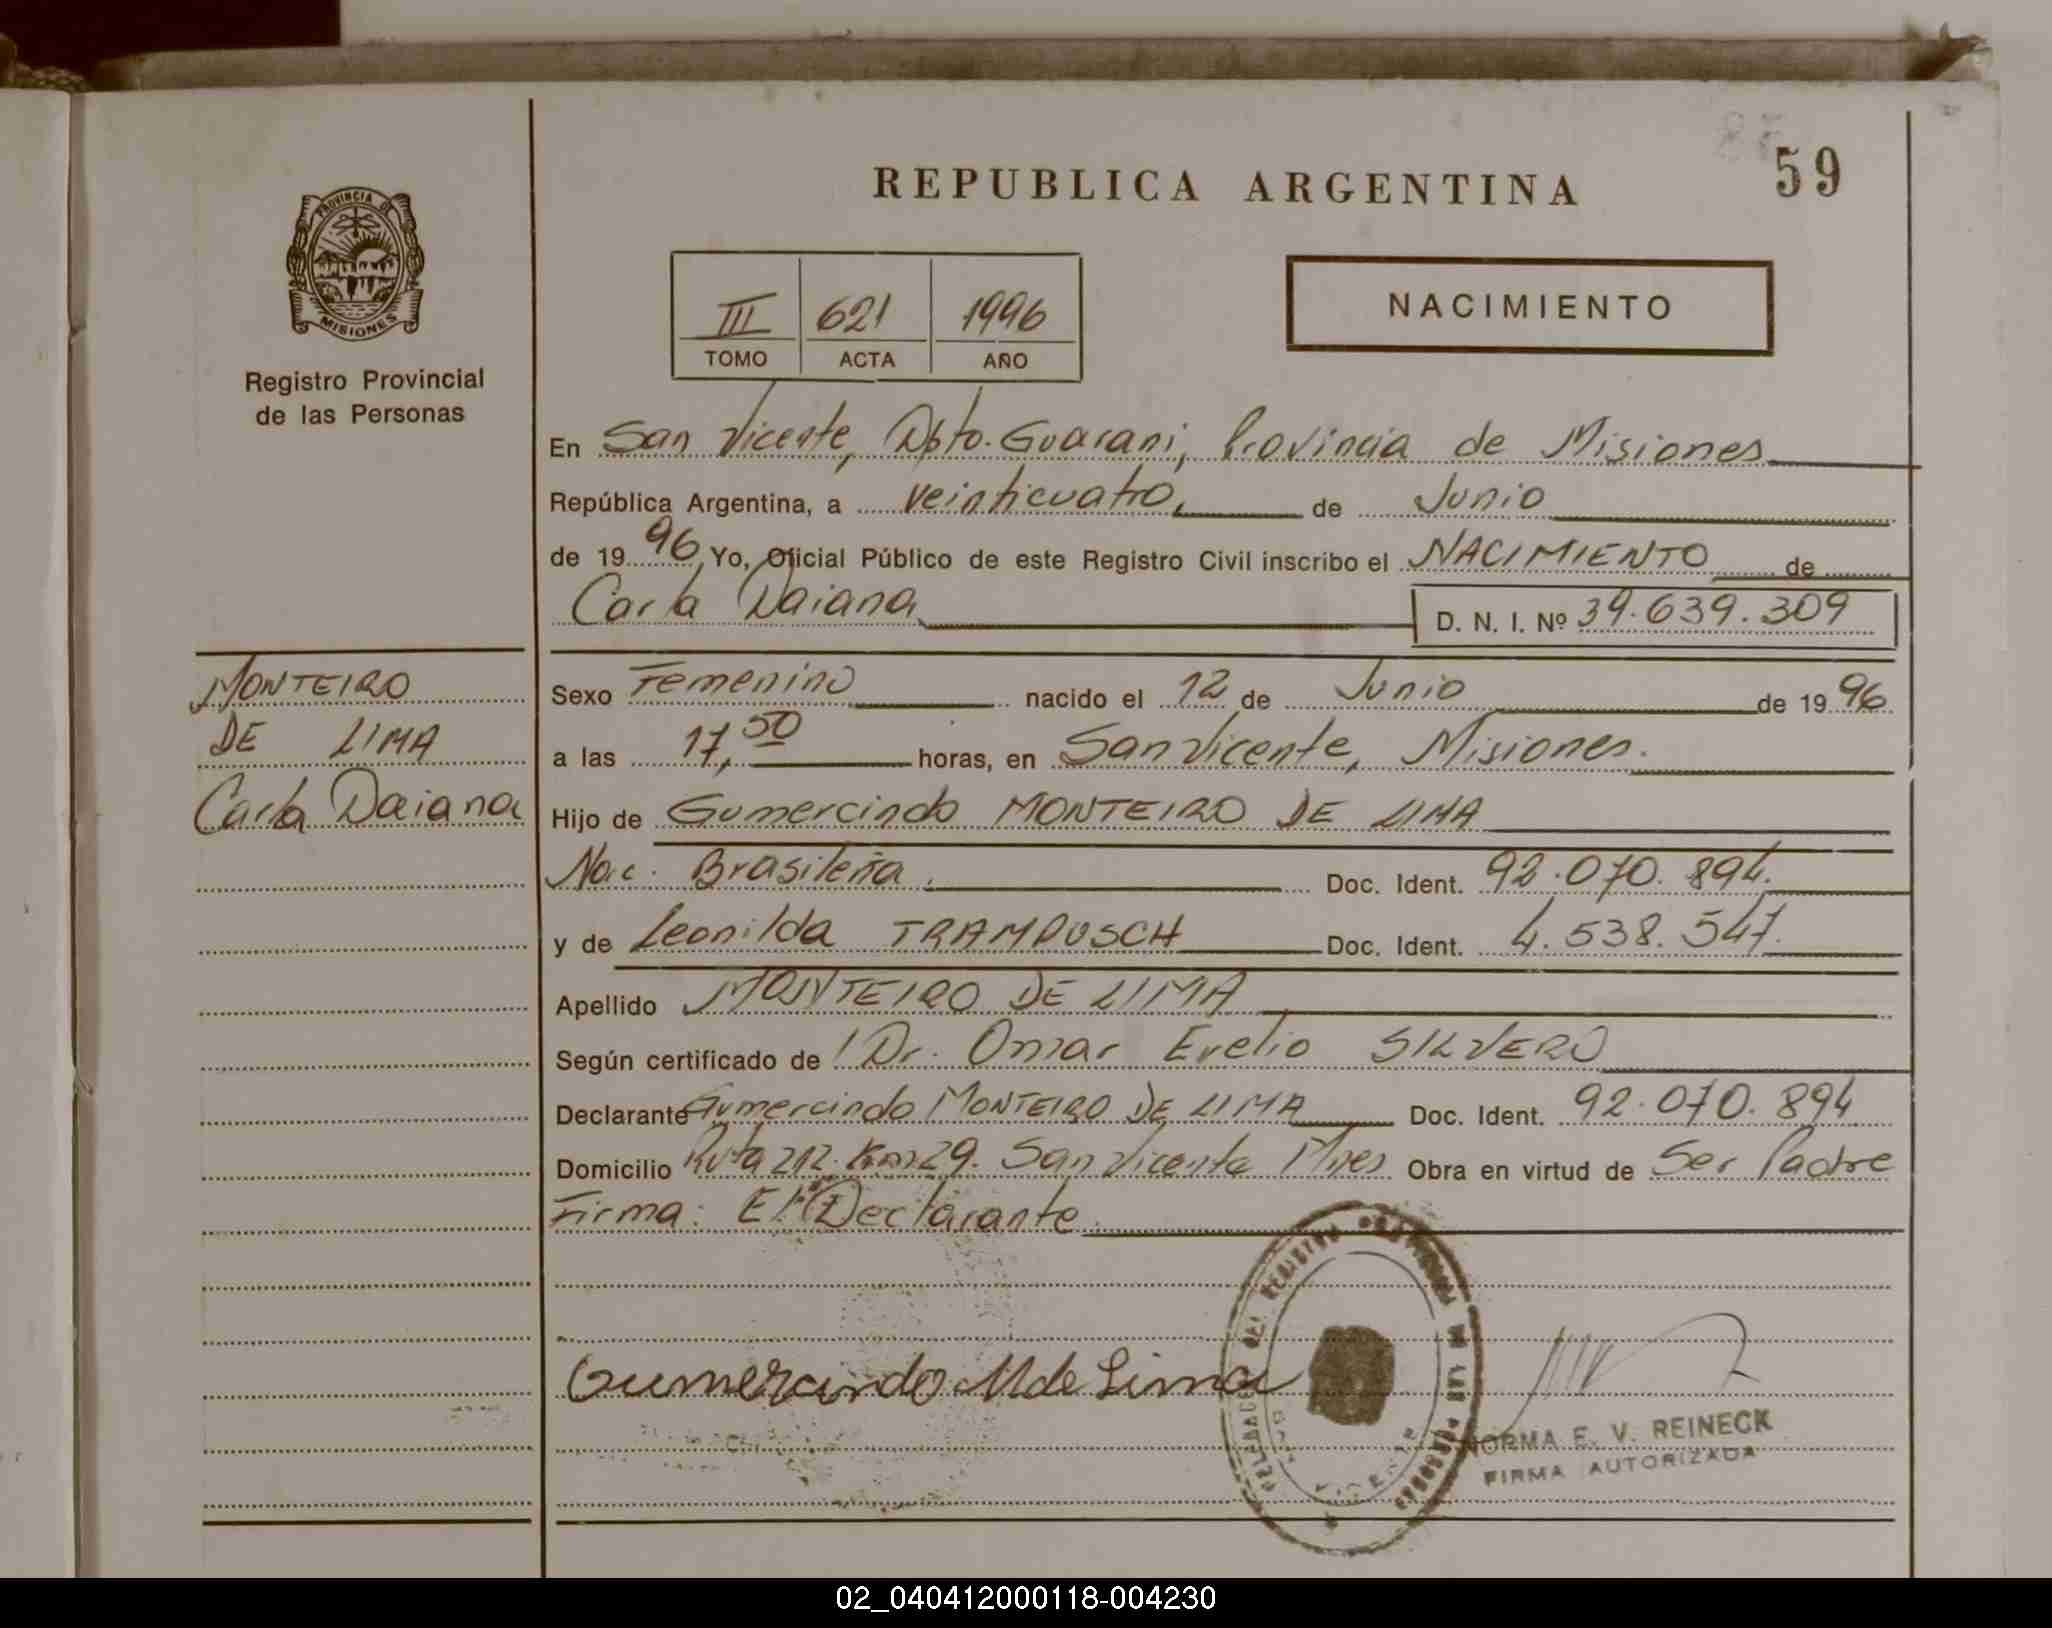 59
REPUBLICA ARGENTINA
PROVINCIA DE
MISIONES
Registro Provincial
de las Personas
III 621 1996
TOMO ACTA AÑO
NACIMIENTO
En San Vicente, Dpto. Guarani, Provincia de Misiones
República Argentina, a veinticuatro, de Junio
de 1996 Yo, Oficial Público de este Registro Civil inscribo el NACIMIENTO de
Carla Daiana D. N. I. Nº 39.639.309
MONTEIRO
DE LIMA
Carla Daiana
Sexo Femenino nacido el 12 de Junio de 1996
a las 17,50 horas, en San Vicente, Misiones.
Hijo de Gumercindo MONTEIRO DE LIMA
Nac. Brasileña. Doc. Ident. 92.070.894.
y de Leonilda TRAMPUSCH Doc. Ident. 4.538.547.
Apellido MONTEIRO DE LIMA
Según certificado de Dr. Omar Evelio SILVERO
Declarante Gumercindo MONTEIRO DE LIMA Doc. Ident. 92.070.894
Domicilio Ruta 212. Km 29. San Vicente Mnes Obra en virtud de Ser Padre
Firma: El Declarante.
Gumercindo M de Lima
DEL REGISTRO PROVINCIAL DE LAS PERSONAS
VICENTE
NORMA E. V. REINECK
FIRMA AUTORIZADA
02_040412000118-004230